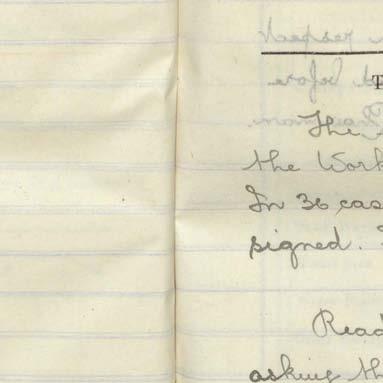 T
The
the Work
In 36 cas
signed.
Read
asking th